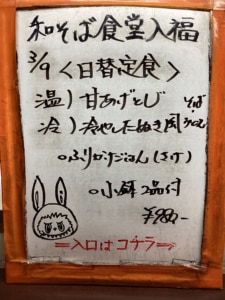 和そば食堂 入福
3/9〈日替定食〉
温) 甘あげとじ
冷) 冷やしたぬき風
そば・うどん
○ふりかけごはん(さけ)
○小鉢2品付
¥980-
=入口はコチラ=